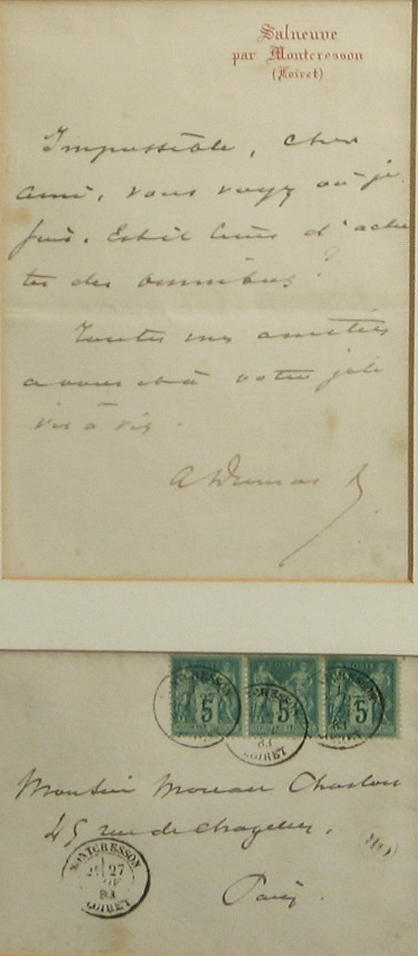 Salneuve
par Montcresson
(Loiret)
Impossible, cher
ami, vous voyez où je
suis. Est-il d'ache
ter des omnibus ?
Toutes mes amitiés
à vous et à votre jolie
vis à vis.
A Dumas
5
5
5
MONTCRESSON
83
LOIRET
Monsieur Moreau Chaslon
45 rue de
Paris
MONTCRESSON
27
83
LOIRET